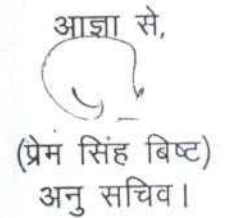 आज्ञा से,
(प्रेम सिंह बिष्ट)
अनु सचिव।